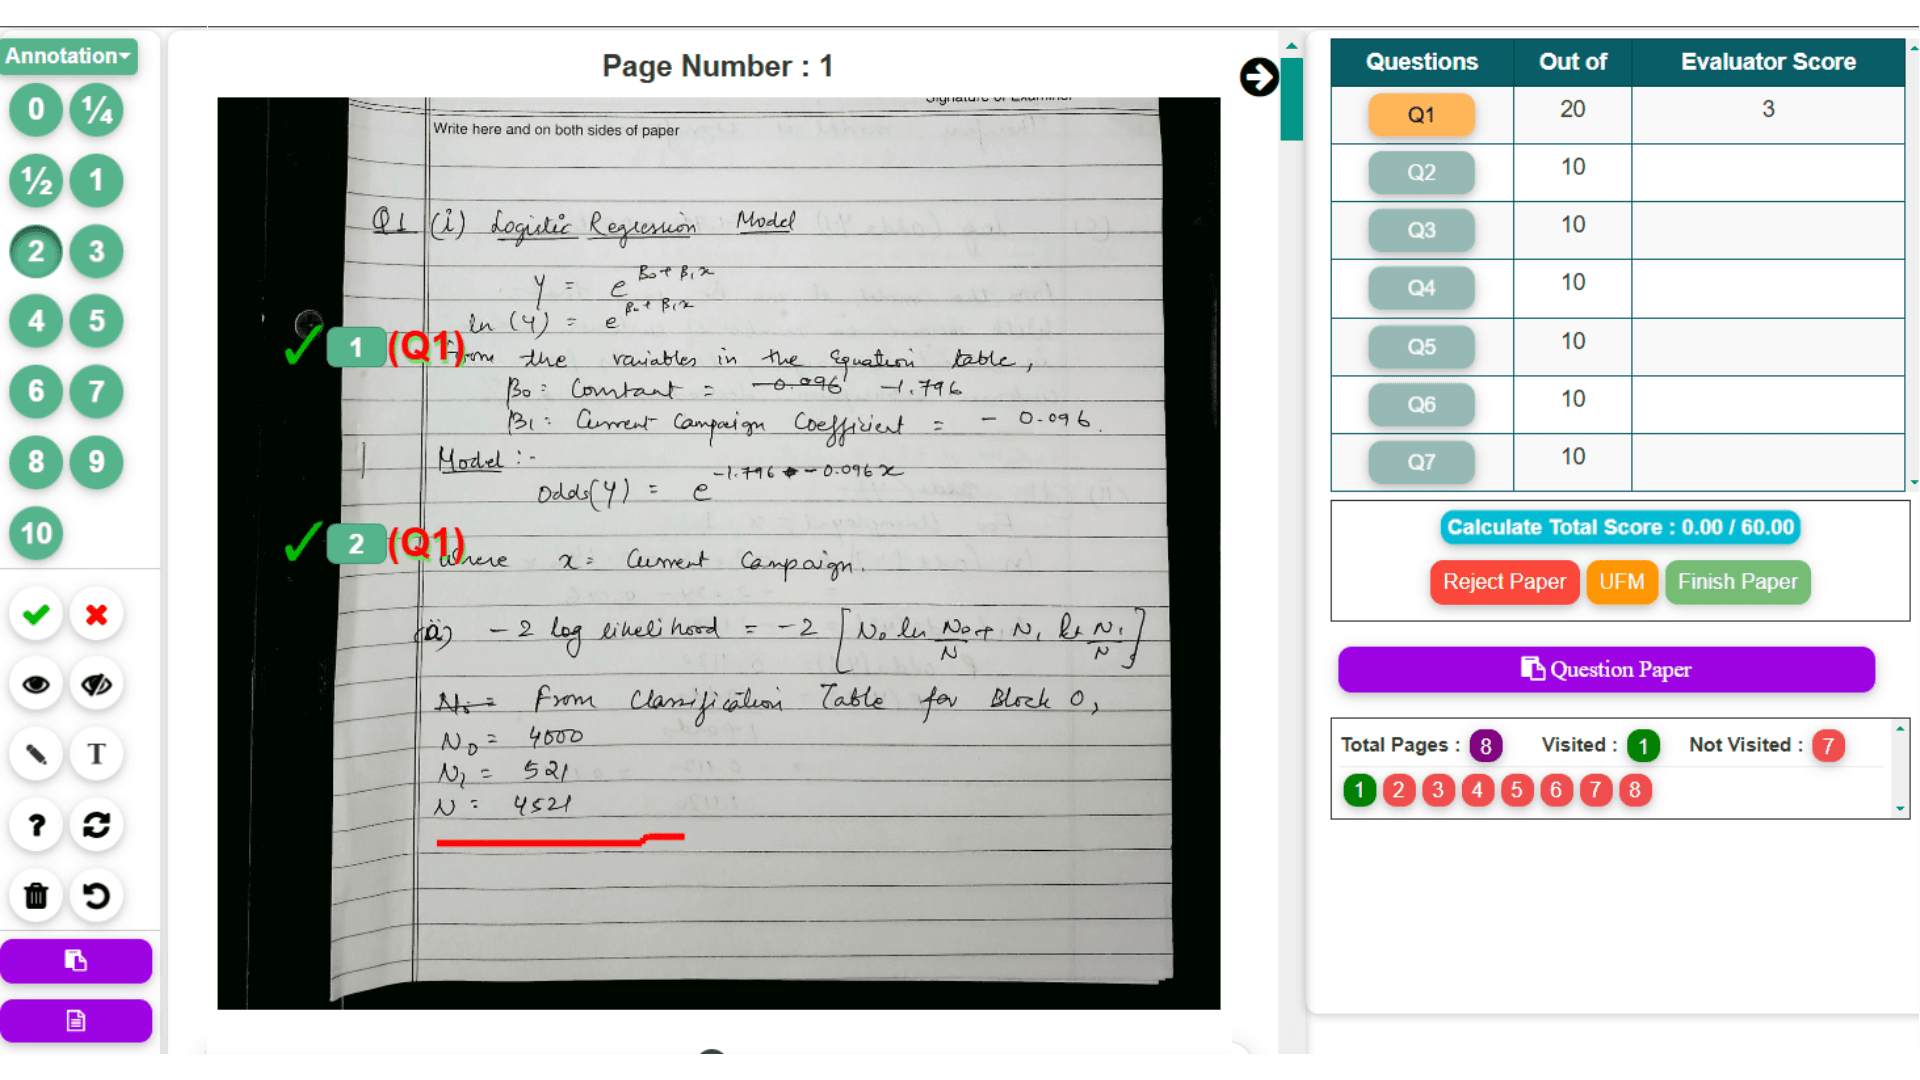 Annotation
0
¼
½
1
2
3
4
5
6
7
8
9
10
T
?
Page Number : 1
Signature of Examiner
Write here and on both sides of paper
Q1 (i) Logistic Regression Model
Y = e^β₀+β₁x
ln (Y) = e^β₀+β₁x
1 (Q1)
From the variables in the Equation table,
β₀ = Constant = -0.096 -1.796
β₁ = Current Campaign Coefficient = -0.096.
Model :-
Odds(Y) = e^-1.796 -0.096x
2 (Q1)
Where x = Current Campaign.
(ii) -2 log likelihood = -2 [N₀ ln N₀/N + N₁ ln N₁/N]
N₀ = From Classification Table for Block 0,
N₀ = 4000
N₁ = 521
N = 4521
Questions Out of Evaluator Score
Q1 20 3
Q2 10
Q3 10
Q4 10
Q5 10
Q6 10
Q7 10
Calculate Total Score : 0.00 / 60.00
Reject Paper UFM Finish Paper
Question Paper
Total Pages : 8 Visited : 1 Not Visited : 7
1 2 3 4 5 6 7 8